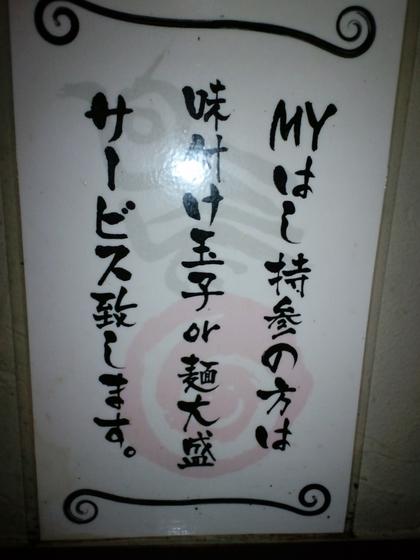 MYはし持参の方は
味付け玉子or麺大盛
サービス致します。